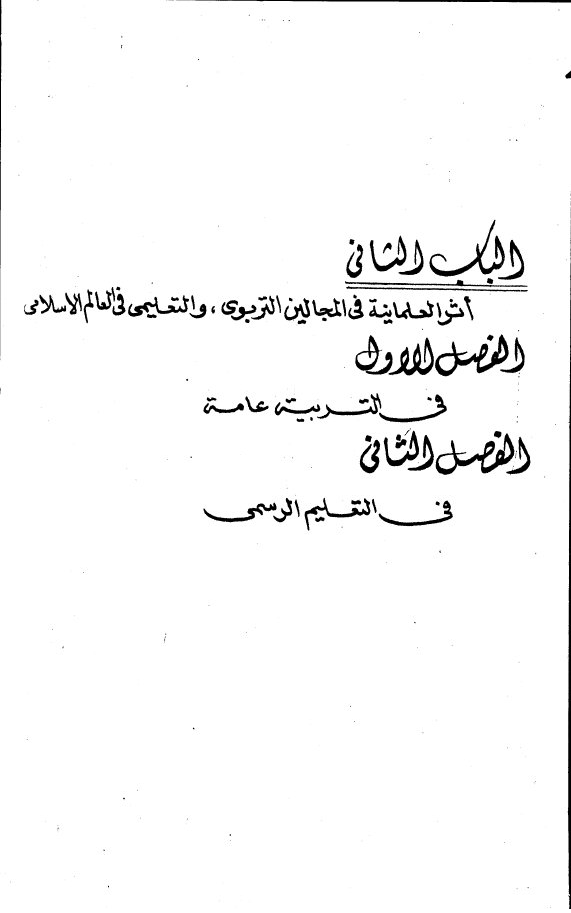 الباب الثاني
أثر العلمانية في المجالين التربوى ، والتعليمى في العالم الاسلامى
الفصل الاول
في التربية عامة
الفصل الثاني
في التعليم الرسمى